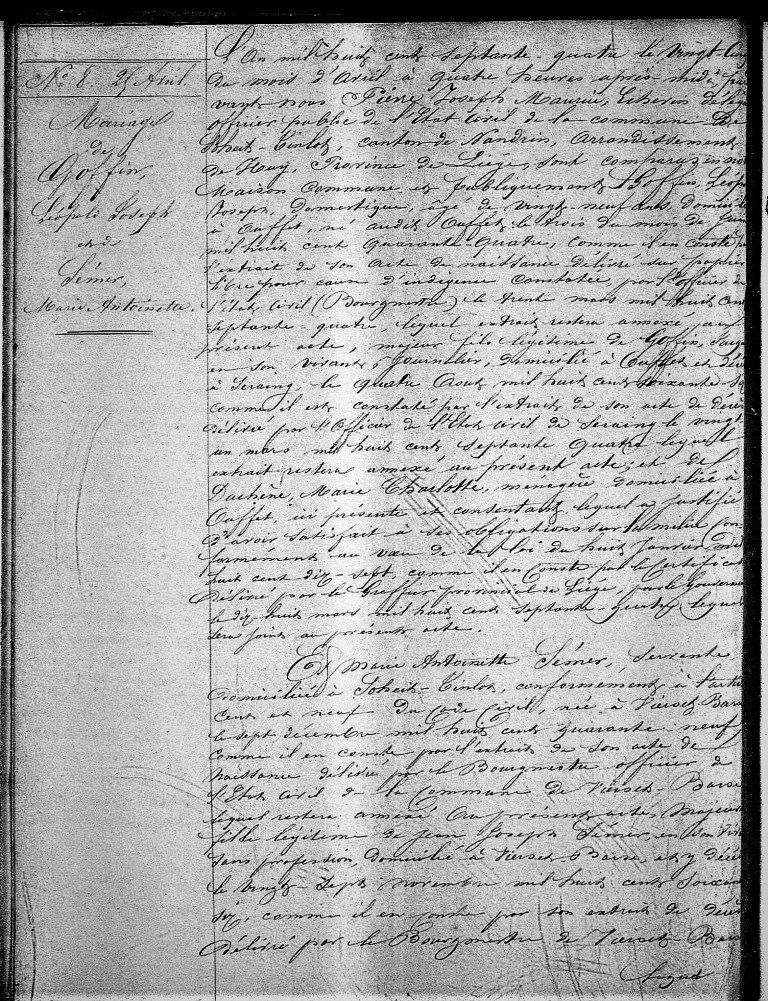 N° 8. 25 Avril.
Mariage
de
Goffin,
Léopold Joseph
et de
Sémer,
Marie Antoinette.
L'An mil huit cent septante quatre le vingt-cinq
du mois d'Avril à quatre heures après-midi par
devant nous Pierre Joseph Echevin délég
officier public de l'Etat civil de la commune de
Soheit-Tinlot, canton de Nandrin, Arrondissement
de Huy, Province de Liége, sont comparus en notre
Maison Commune et publiquement Goffin, Léopo
Joseph, Domestique, âgé de vingt-neuf ans, domici
à Ouffet, né audit Ouffet le trois du mois de
mil huit cent quarante-quatre, comme il en conste p
l'extrait de son acte de naissance délivré sur papier
libre pour cause d'indigence constatée par l'officier de
l'état civil (Bourgmestre) le trente mars mil huit cent
septante-quatre, lequel extrait restera annexé au
présent acte, majeur fils légitime de Goffin, Jacq
en son vivant journalier, domicilié à Ouffet et décé
à Seraing, le quatre Aout mil huit cent soixante-s
comme il est constaté par l'extrait de son acte de décès
délivré par l'Officier de l'Etat civil de Seraing le vingt
un mars mil huit cent septante quatre lequel
extrait restera annexé au présent acte; et de
Duchène, Marie Charlotte, ménagère domiciliée à
Ouffet, ici présente et consentant, lequel a justifié
d'avoir satisfait à ses obligations sur la milice con
formément au vœu de la loi du huit Janvier mil
huit cent dix-sept, comme il en conste par le certificat
délivré par le Greffier provincial de Liége, par le Gouverneur
le dix-huit mars mil huit cent septante-quatre, lequel
sera joint au présent acte.
Et Marie Antoinette Sémer, servante
domiciliée à Soheit-Tinlot, conformément à l'arti
cent et neuf du code civil, née à Vierset-Barse
le sept décembre mil huit cent quarante-neuf
comme il en conste par l'extrait de son acte de
naissance délivré par le Bourgmestre officier de
l'Etat civil de la Commune de Vierset-Barse
lequel restera annexé au présent acte, majeure
fille légitime de Jean Joseph Sémer, en son viv
sans profession, domicilié à Vierset-Barse, et y décéd
le vingt-sept novembre mil huit cent soixan
six, comme il en conste par son extrait de décès
délivré par le Bourgmestre de Vierset-Barse
lequel